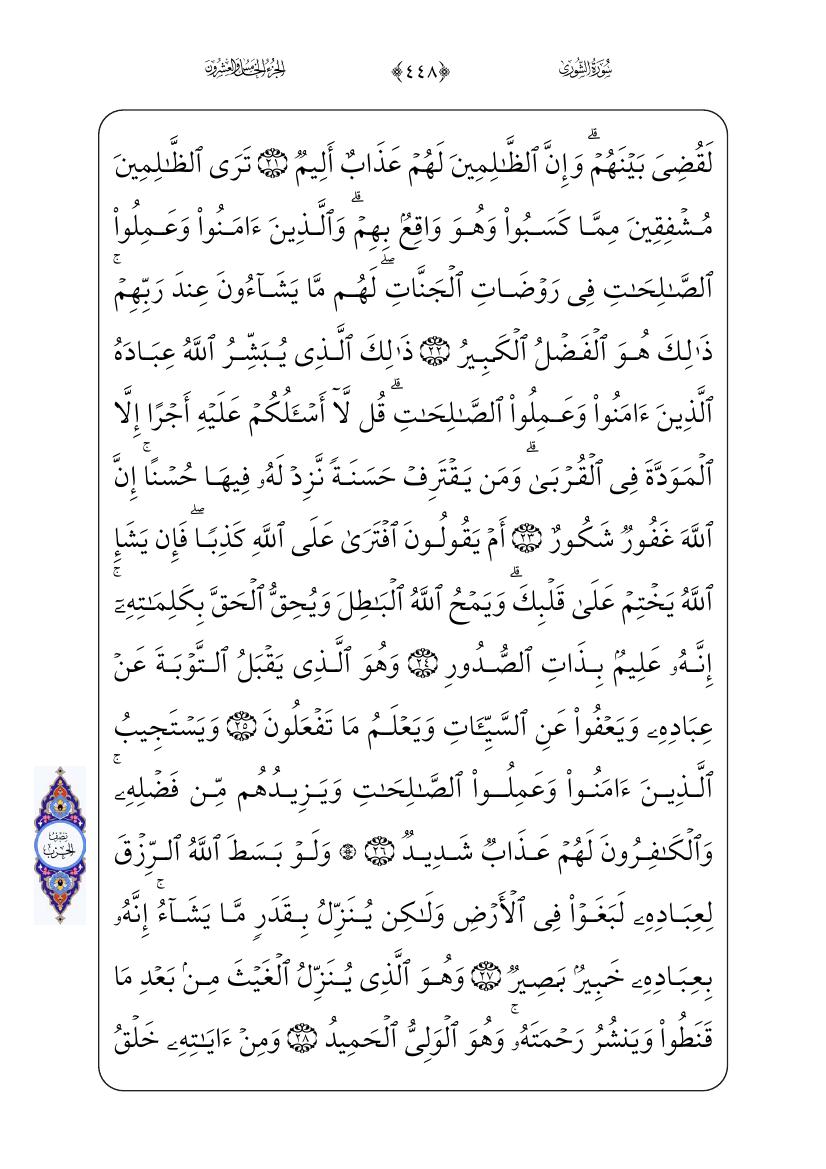 سُورَةُ الشُّورَىٰ
﴿٤٤٨﴾
الجُزْءُ الخَامِسُ وَالعِشْرُونَ
لَقُضِيَ بَيۡنَهُمۡۗ وَإِنَّ ٱلظَّٰلِمِينَ لَهُمۡ عَذَابٌ أَلِيمٞ ٢١ تَرَى ٱلظَّٰلِمِينَ
مُشۡفِقِينَ مِمَّا كَسَبُواْ وَهُوَ وَاقِعُۢ بِهِمۡۗ وَٱلَّذِينَ ءَامَنُواْ وَعَمِلُواْ
ٱلصَّٰلِحَٰتِ فِي رَوۡضَاتِ ٱلۡجَنَّاتِۖ لَهُم مَّا يَشَآءُونَ عِندَ رَبِّهِمۡۚ
ذَٰلِكَ هُوَ ٱلۡفَضۡلُ ٱلۡكَبِيرُ ٢٢ ذَٰلِكَ ٱلَّذِي يُبَشِّرُ ٱللَّهُ عِبَادَهُ
ٱلَّذِينَ ءَامَنُواْ وَعَمِلُواْ ٱلصَّٰلِحَٰتِۗ قُل لَّآ أَسۡـَٔلُكُمۡ عَلَيۡهِ أَجۡرًا إِلَّا
ٱلۡمَوَدَّةَ فِي ٱلۡقُرۡبَىٰۗ وَمَن يَقۡتَرِفۡ حَسَنَةٗ نَّزِدۡ لَهُۥ فِيهَا حُسۡنًاۚ إِنَّ
ٱللَّهَ غَفُورٞ شَكُورٌ ٢٣ أَمۡ يَقُولُونَ ٱفۡتَرَىٰ عَلَى ٱللَّهِ كَذِبٗاۖ فَإِن يَشَإِ
ٱللَّهُ يَخۡتِمۡ عَلَىٰ قَلۡبِكَۗ وَيَمۡحُ ٱللَّهُ ٱلۡبَٰطِلَ وَيُحِقُّ ٱلۡحَقَّ بِكَلِمَٰتِهِۦٓۚ
إِنَّهُۥ عَلِيمُۢ بِذَاتِ ٱلصُّدُورِ ٢٤ وَهُوَ ٱلَّذِي يَقۡبَلُ ٱلتَّوۡبَةَ عَنۡ
عِبَادِهِۦ وَيَعۡفُواْ عَنِ ٱلسَّيِّـَٔاتِ وَيَعۡلَمُ مَا تَفۡعَلُونَ ٢٥ وَيَسۡتَجِيبُ
ٱلَّذِينَ ءَامَنُواْ وَعَمِلُواْ ٱلصَّٰلِحَٰتِ وَيَزِيدُهُم مِّن فَضۡلِهِۦۚ
وَٱلۡكَٰفِرُونَ لَهُمۡ عَذَابٞ شَدِيدٞ ٢٦ ۞ وَلَوۡ بَسَطَ ٱللَّهُ ٱلرِّزۡقَ
لِعِبَادِهِۦ لَبَغَوۡاْ فِي ٱلۡأَرۡضِ وَلَٰكِن يُنَزِّلُ بِقَدَرٖ مَّا يَشَآءُۚ إِنَّهُۥ
بِعِبَادِهِۦ خَبِيرُۢ بَصِيرٞ ٢٧ وَهُوَ ٱلَّذِي يُنَزِّلُ ٱلۡغَيۡثَ مِنۢ بَعۡدِ مَا
قَنَطُواْ وَيَنشُرُ رَحۡمَتَهُۥۚ وَهُوَ ٱلۡوَلِيُّ ٱلۡحَمِيدُ ٢٨ وَمِنۡ ءَايَٰتِهِۦ خَلۡقُ
نِصْفُ
الحِزْبِ